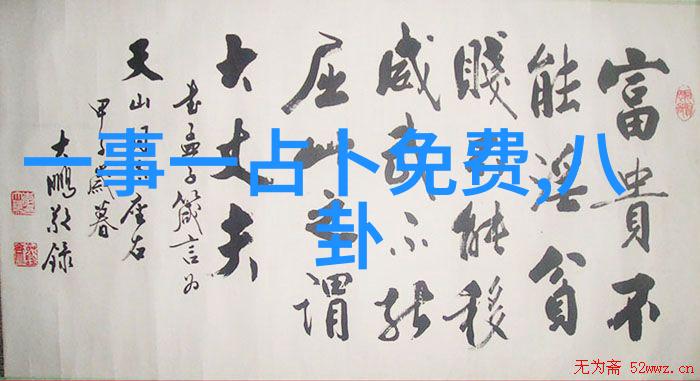 富貴不
能淫貧
賤不能移
威武不能
屈此之謂
大丈夫
书孟子箴言为
天山座右
甲子岁暮
大鹏敬録
一事一占卜免费,八
卦
无为斋 52wwz.cn